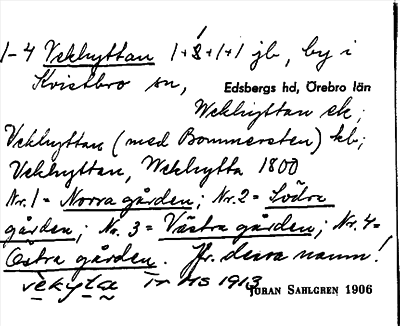 1-4 Vekhyttan 1+8+1+1 jb, by i
Kvistbro sn, Edsbergs hd, Örebro län
Wekhyttan ek;
Vekhyttan (med Bommersten) kb;
Vekhyttan, Wekhytta 1800
Nr. 1 = Norra gården; Nr. 2 = Södra
gården; Nr. 3 = Västra gården; Nr. 4 =
Östra gården. Jfr. dessa namn!
vekyta IT MS 1913
JÖRAN SAHLGREN 1906